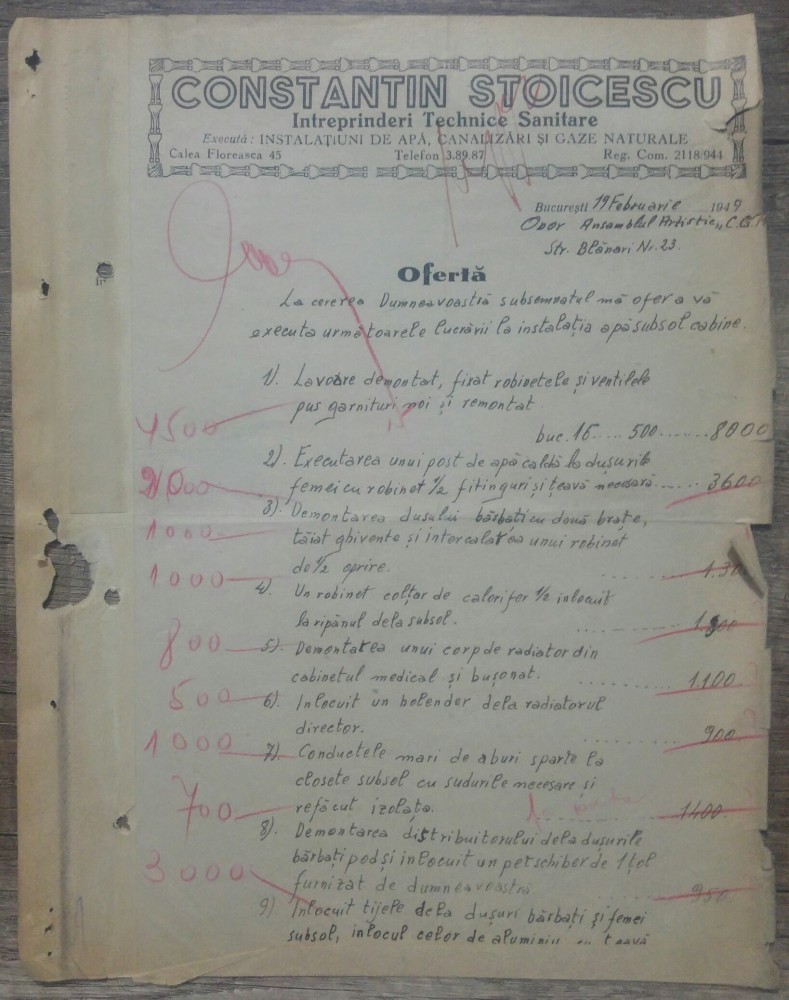 CONSTANTIN STOICESCU
Intreprinderi Technice Sanitare
Execută: INSTALAȚIUNI DE APĂ, CANALIZĂRI ȘI GAZE NATURALE
Calea Floreasca 45 Telefon 3.89.87 Reg. Com. 2118/944
București 19 Februarie 1949
Onor Ansamblul Artistic „C.G.
Str. Blănari Nr. 23.
Ofertă
La cererea Dumneavoastră subsemnatul mă ofer a vă
executa următoarele lucrării la instalația apă subsol cabine.
1). Lavoare demontat, fixat robinetele și ventilele
pus garnituri noi și remontat
4500
buc. 16.... 500.......8000
2). Executarea unui post de apă caldă la dușurile
femei cu robinet 1/2 fitinguri și țeavă necesară..... 3600
2000
3). Demontarea dușului bărbați cu două brațe,
tăiat ghivente și intercalarea unui robinet
1000
de 1/2 oprire. 1.30
1000
4). Un robinet colțar de calorifer 1/2 inlocuit
la ripânul dela subsol. 1.900
800
5). Demontarea unui corp de radiator din
cabinetul medical și bușonat. 1.100
500
6). Inlocuit un holender dela radiatorul
director. 900
1000
7). Conductele mari de aburi sparte la
closete subsol cu sudurile necesare și
refăcut izolața. 1400
700
8). Demontarea distribuitorului dela dușurile
bărbați pod și inlocuit un petschiber de 1 țol
furnizat de dumneavoastră 950
3000
9) Inlocuit tijele dela dușuri bărbați și femei
subsol, in locul celor de aluminiu țeavă